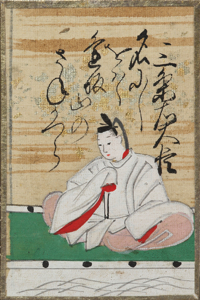 三条右大臣
名にし
おはゝ
逢坂山の
さねかつら